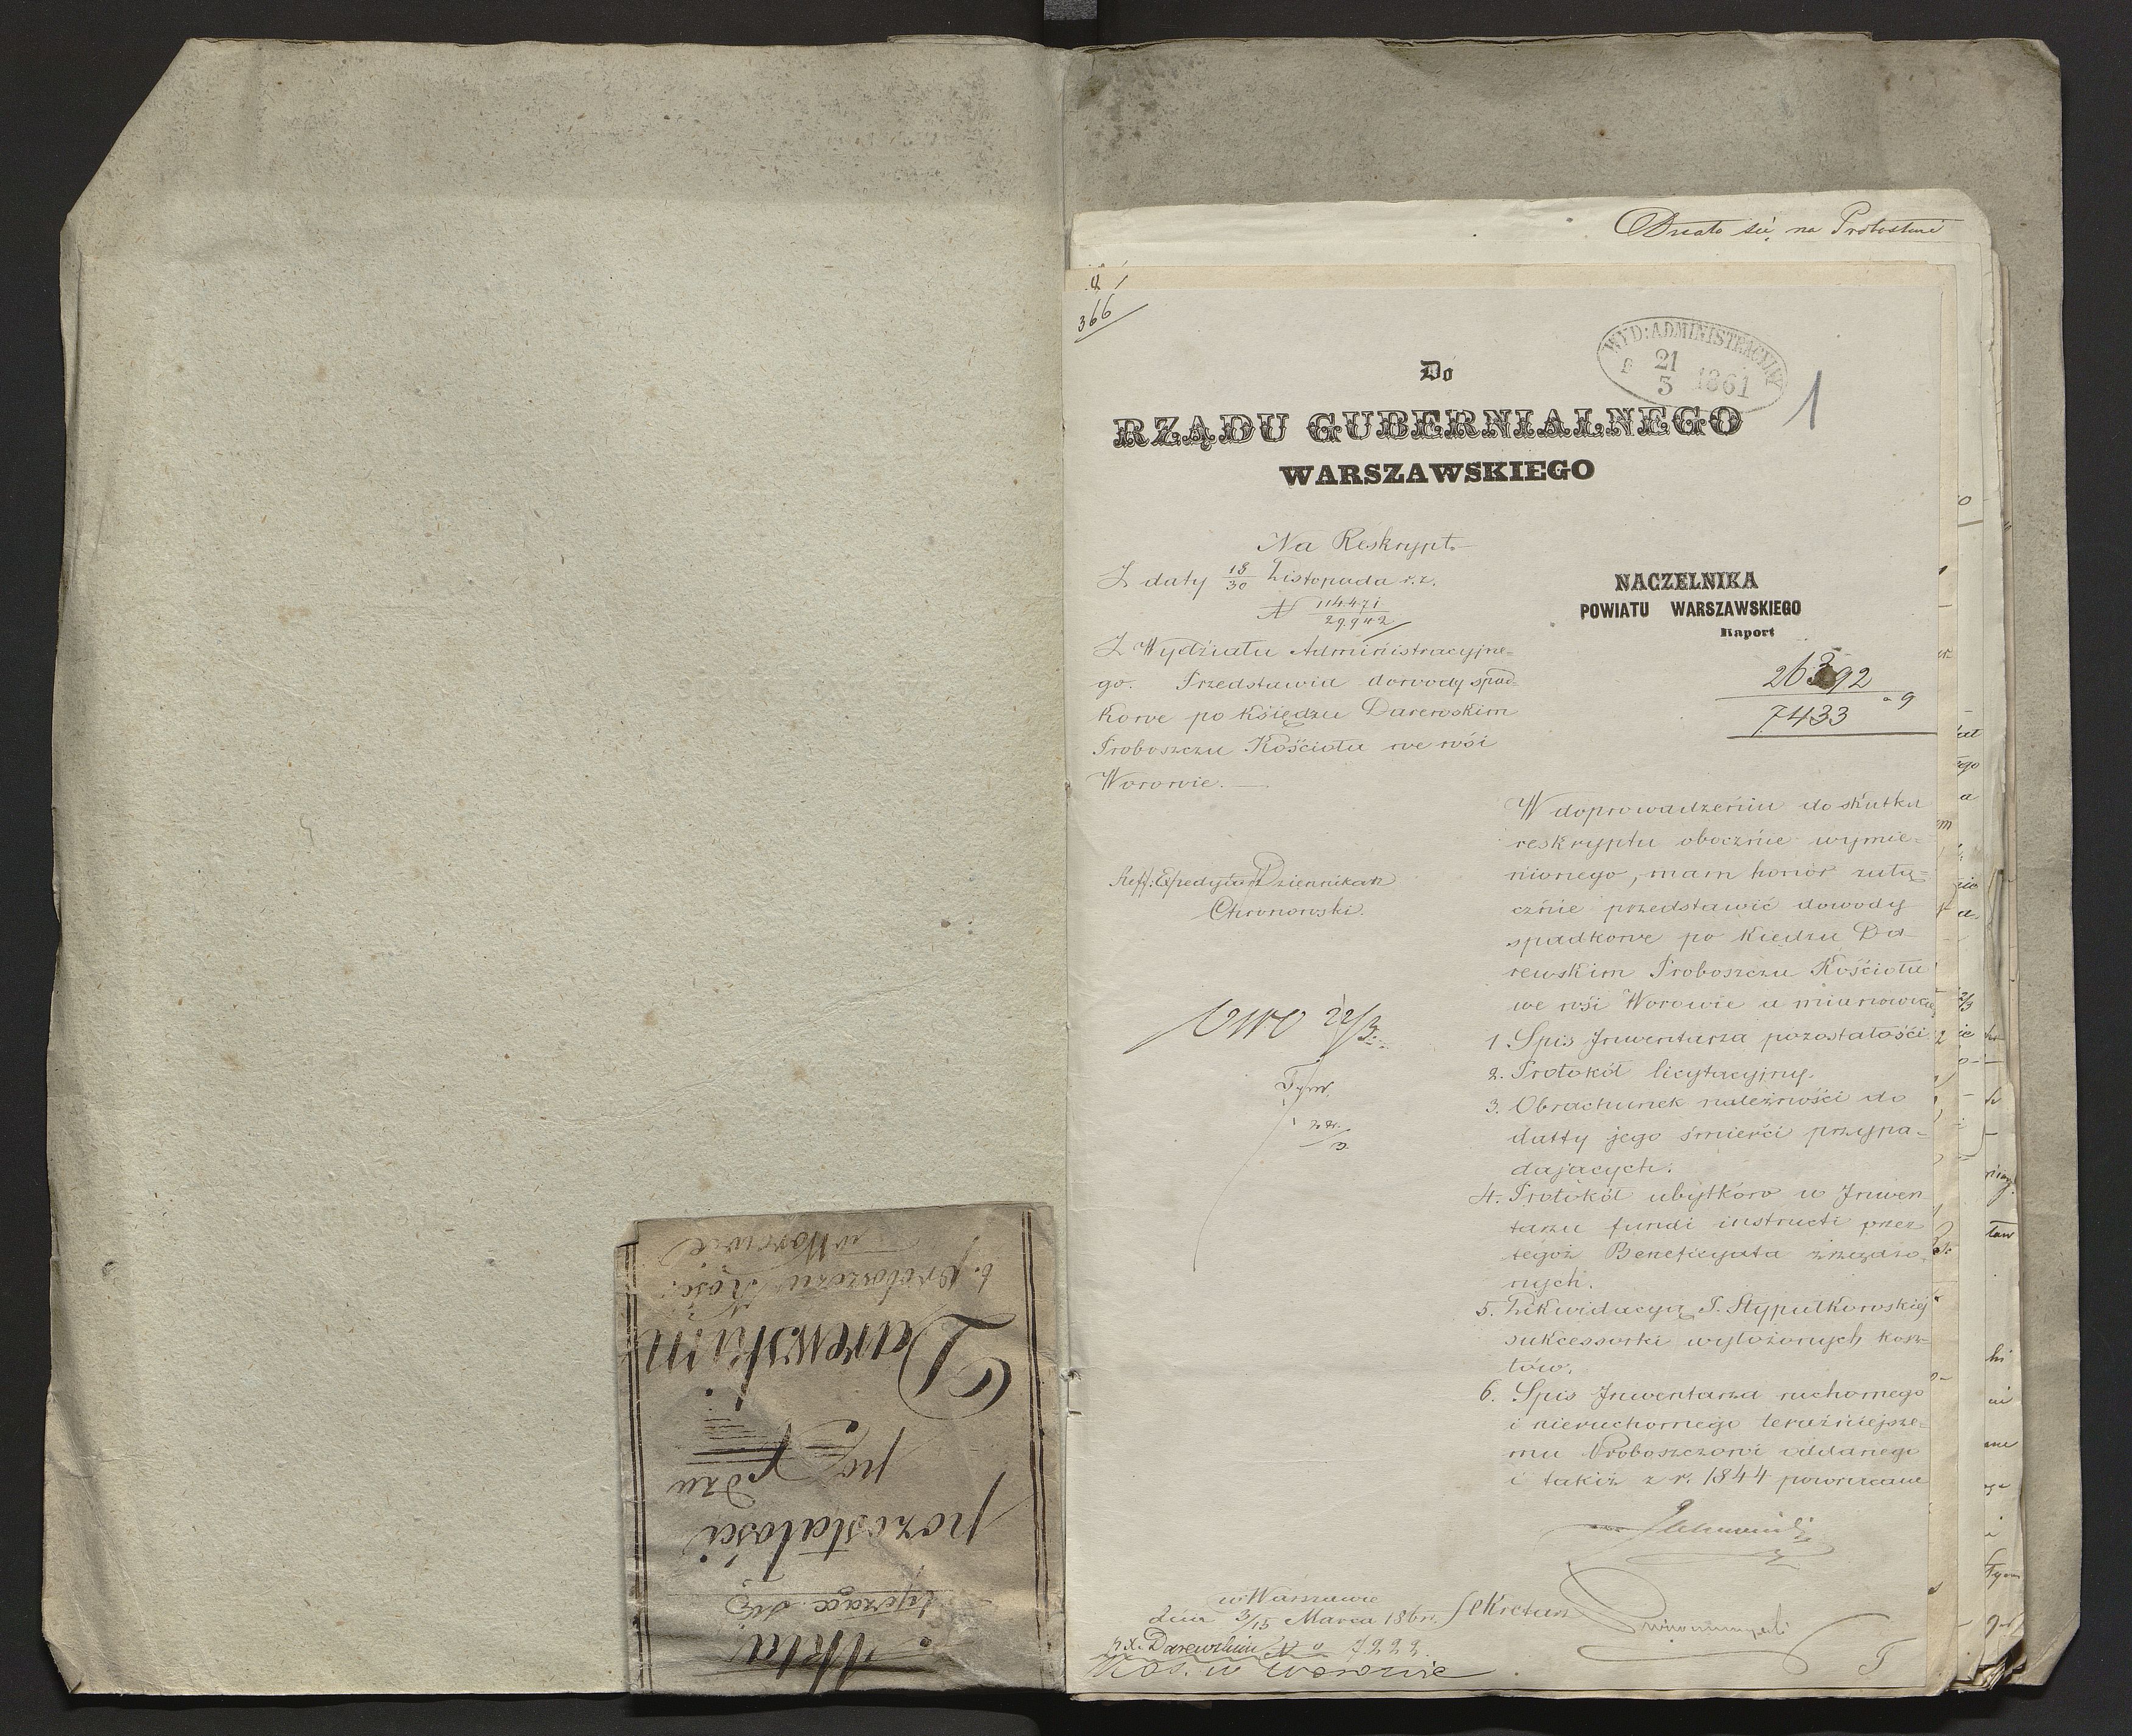 Akta
tyczące się
pozostałości
po Xiędzu
Darewskim
b. Proboszczu Kość:
w Worowie
Działo się na Probostwie
366
WYD: ADMINISTRACYJNY
21
3
1861
1
Do
RZĄDU GUBERNIALNEGO
WARSZAWSKIEGO
Na Reskrypt
Z daty 18/30 Listopada r. z.
N 114471/29942
Z Wydziału Administracyjne=
go. Przedstawia dowody spad=
kowe po Księdzu Darewskim
Proboszczu Kościoła we wsi
Worowie.
Reff: Expedytor Dziennikarz
Chronowski.
22/3
NACZELNIKA
POWIATU WARSZAWSKIEGO
Raport
26392
7433
W doprowadzeniu do skutku
reskryptu obocznie wymie=
nionego, mam honor załą=
cznie przedstawić dowody
spadkowe po Kiędzu Da=
rewskim Proboszczu Kościoła
we wsi Worowie a mianowicie
1 Spis Inwentarza pozostałości
2. Protokół licytacyjny.
3. Obrachunek należności do
datty jego śmierci przypa=
dajacych.
4. Protokół ubytków w Inwen
tarzu fundi instructi przez
tegoż Beneficyata zrządzo=
nych.
5. Likwidacyą P. Stypułkowskiéj
sukcessorki wyłożonych kosz=
tów.
6. Spis Inwentarza ruchomego
i nieruchomego teraźniejsze=
mu Proboszczowi oddanego
i takiż z r. 1844 powracane
w Warszawie
dnia 3/15 Marca 1861 r. Sekretarz
p. x. Darewskim 7222.
Koś. w Worowie